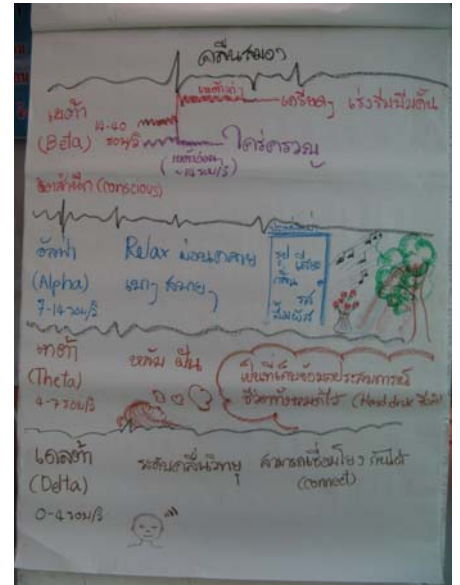 คลื่นสมอง
เบต้า
(Beta)
14-40
รอบ/วิ
เครียดๆ เร่งรีบบีบคั้น
ใคร่ครวญ
จิตสำนึก (conscious)
อัลฟ่า
(Alpha)
7-14 รอบ/วิ
Relax ผ่อนคลาย
เบาๆ สบายๆ
รูป เสียง
กลิ่น รส
สัมผัส
เทต้า
(Theta)
4-7 รอบ/วิ
หลับ ฝัน
เป็นที่เก็บข้อมูลประสบการณ์
ชีวิตทั้งหมดไว้ (Hard disk ชีวิต)
เดลต้า
(Delta)
0-4 รอบ/วิ
ระดับคลื่นวิทยุ สามารถเชื่อมโยงกันได้
(connect)